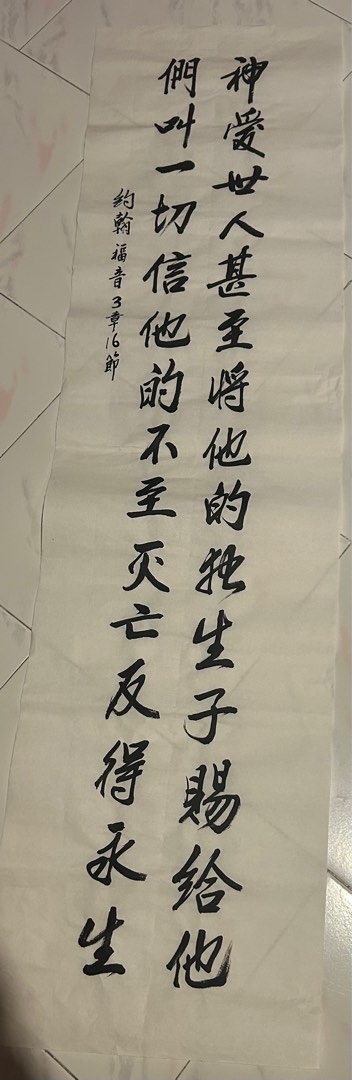 神愛世人甚至将他的独生子賜给他
們叫一切信他的不至灭亡反得永生
約翰福音3章16節